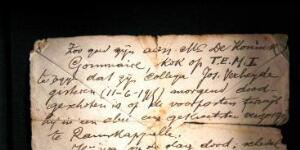 Zoo goed zijn aan Mr De Koninck
Gommaire, kok op T.E.M.I
te zeggen dat zijn collega Jos. Verheyde
gisteren (11-6-1917) morgend dood
geschoten is op de voorposten terwijl
hij in een alie en gekwetsten
te Ramskappelle.
op slag dood,